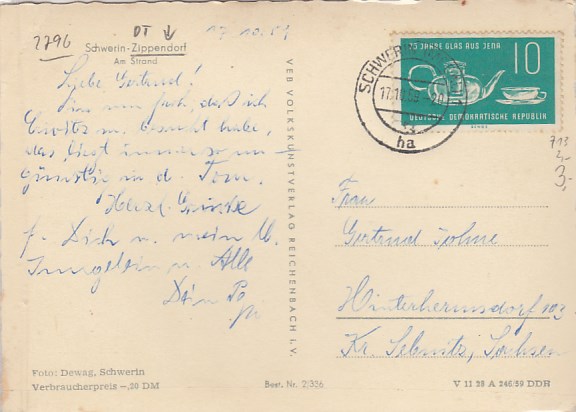 2796 DT 17.10.59
Schwerin-Zippendorf
Am Strand
Liebe Gertrud!
Bin nun froh, daß ich
besucht habe,
das liegt immer so un
günstig in d.
Herzl. Grüße
f. Dich u. mein lb.
u. Alle
Dein
Foto: Dewag, Schwerin
Verbraucherpreis -,20 DM
Best. Nr. 2/356
VEB VOLKSKUNSTVERLAG REICHENBACH I. V.
75 JAHRE GLAS AUS JENA 10
DEUTSCHE DEMOKRATISCHE REPUBLIK
SCHWERIN
17.10.59
ha
3,-
Frau
Gertrud Johne
Hinterhermsdorf 102
Kr. Sebnitz, Sachsen
V 11 28 A 246/59 DDR